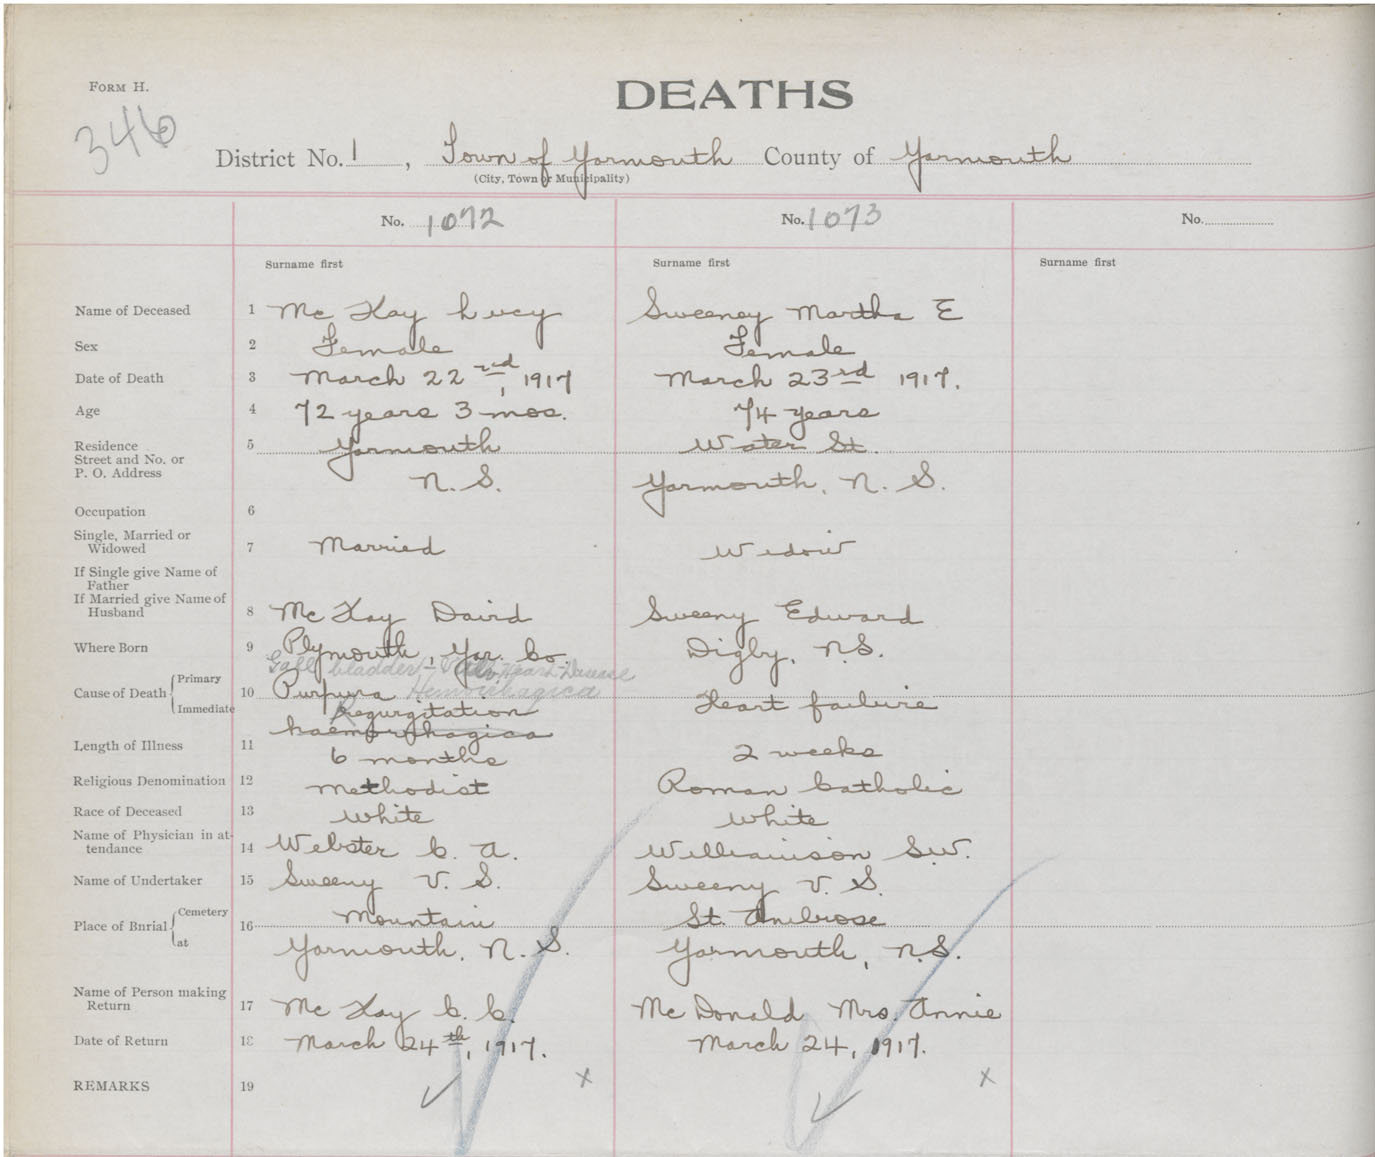 FORM H.
DEATHS
346
District No. 1, Town of Yarmouth County of Yarmouth
(City, Town or Municipality)
No. 1072 No. 1073 No.
Surname first Surname first Surname first
Name of Deceased 1 Mc Kay Lucy Sweeney Martha E
Sex 2 Female Female
Date of Death 3 March 22nd, 1917 March 23rd 1917.
Age 4 72 years 3 mos. 74 years
Residence 5 Yarmouth Water St.
Street and No. or
P. O. Address N. S. Yarmouth, N. S.
Occupation 6
Single, Married or
Widowed 7 Married Widow
If Single give Name of
Father
If Married give Name of
Husband 8 Mc Kay David Sweeny Edward
Where Born 9 Plymouth, Yar. Co. Digby, N.S.
Gall bladder - Heart Disease
Cause of Death Primary 10 Purpura Hemorrhagica
Immediate Regurgitation Heart failure
haemorrhagica
Length of Illness 11 6 months 2 weeks
Religious Denomination 12 Methodist Roman Catholic
Race of Deceased 13 White White
Name of Physician in at-
tendance 14 Webster C. A. Williamson S.W.
Name of Undertaker 15 Sweeny V. S. Sweeny V. S.
Place of Burial Cemetery 16 Mountain St. Ambrose
at Yarmouth, N. S. Yarmouth, N.S.
Name of Person making
Return 17 Mc Kay C. C. Mc Donald Mrs. Annie
Date of Return 18 March 24th, 1917. March 24, 1917.
REMARKS 19 x x